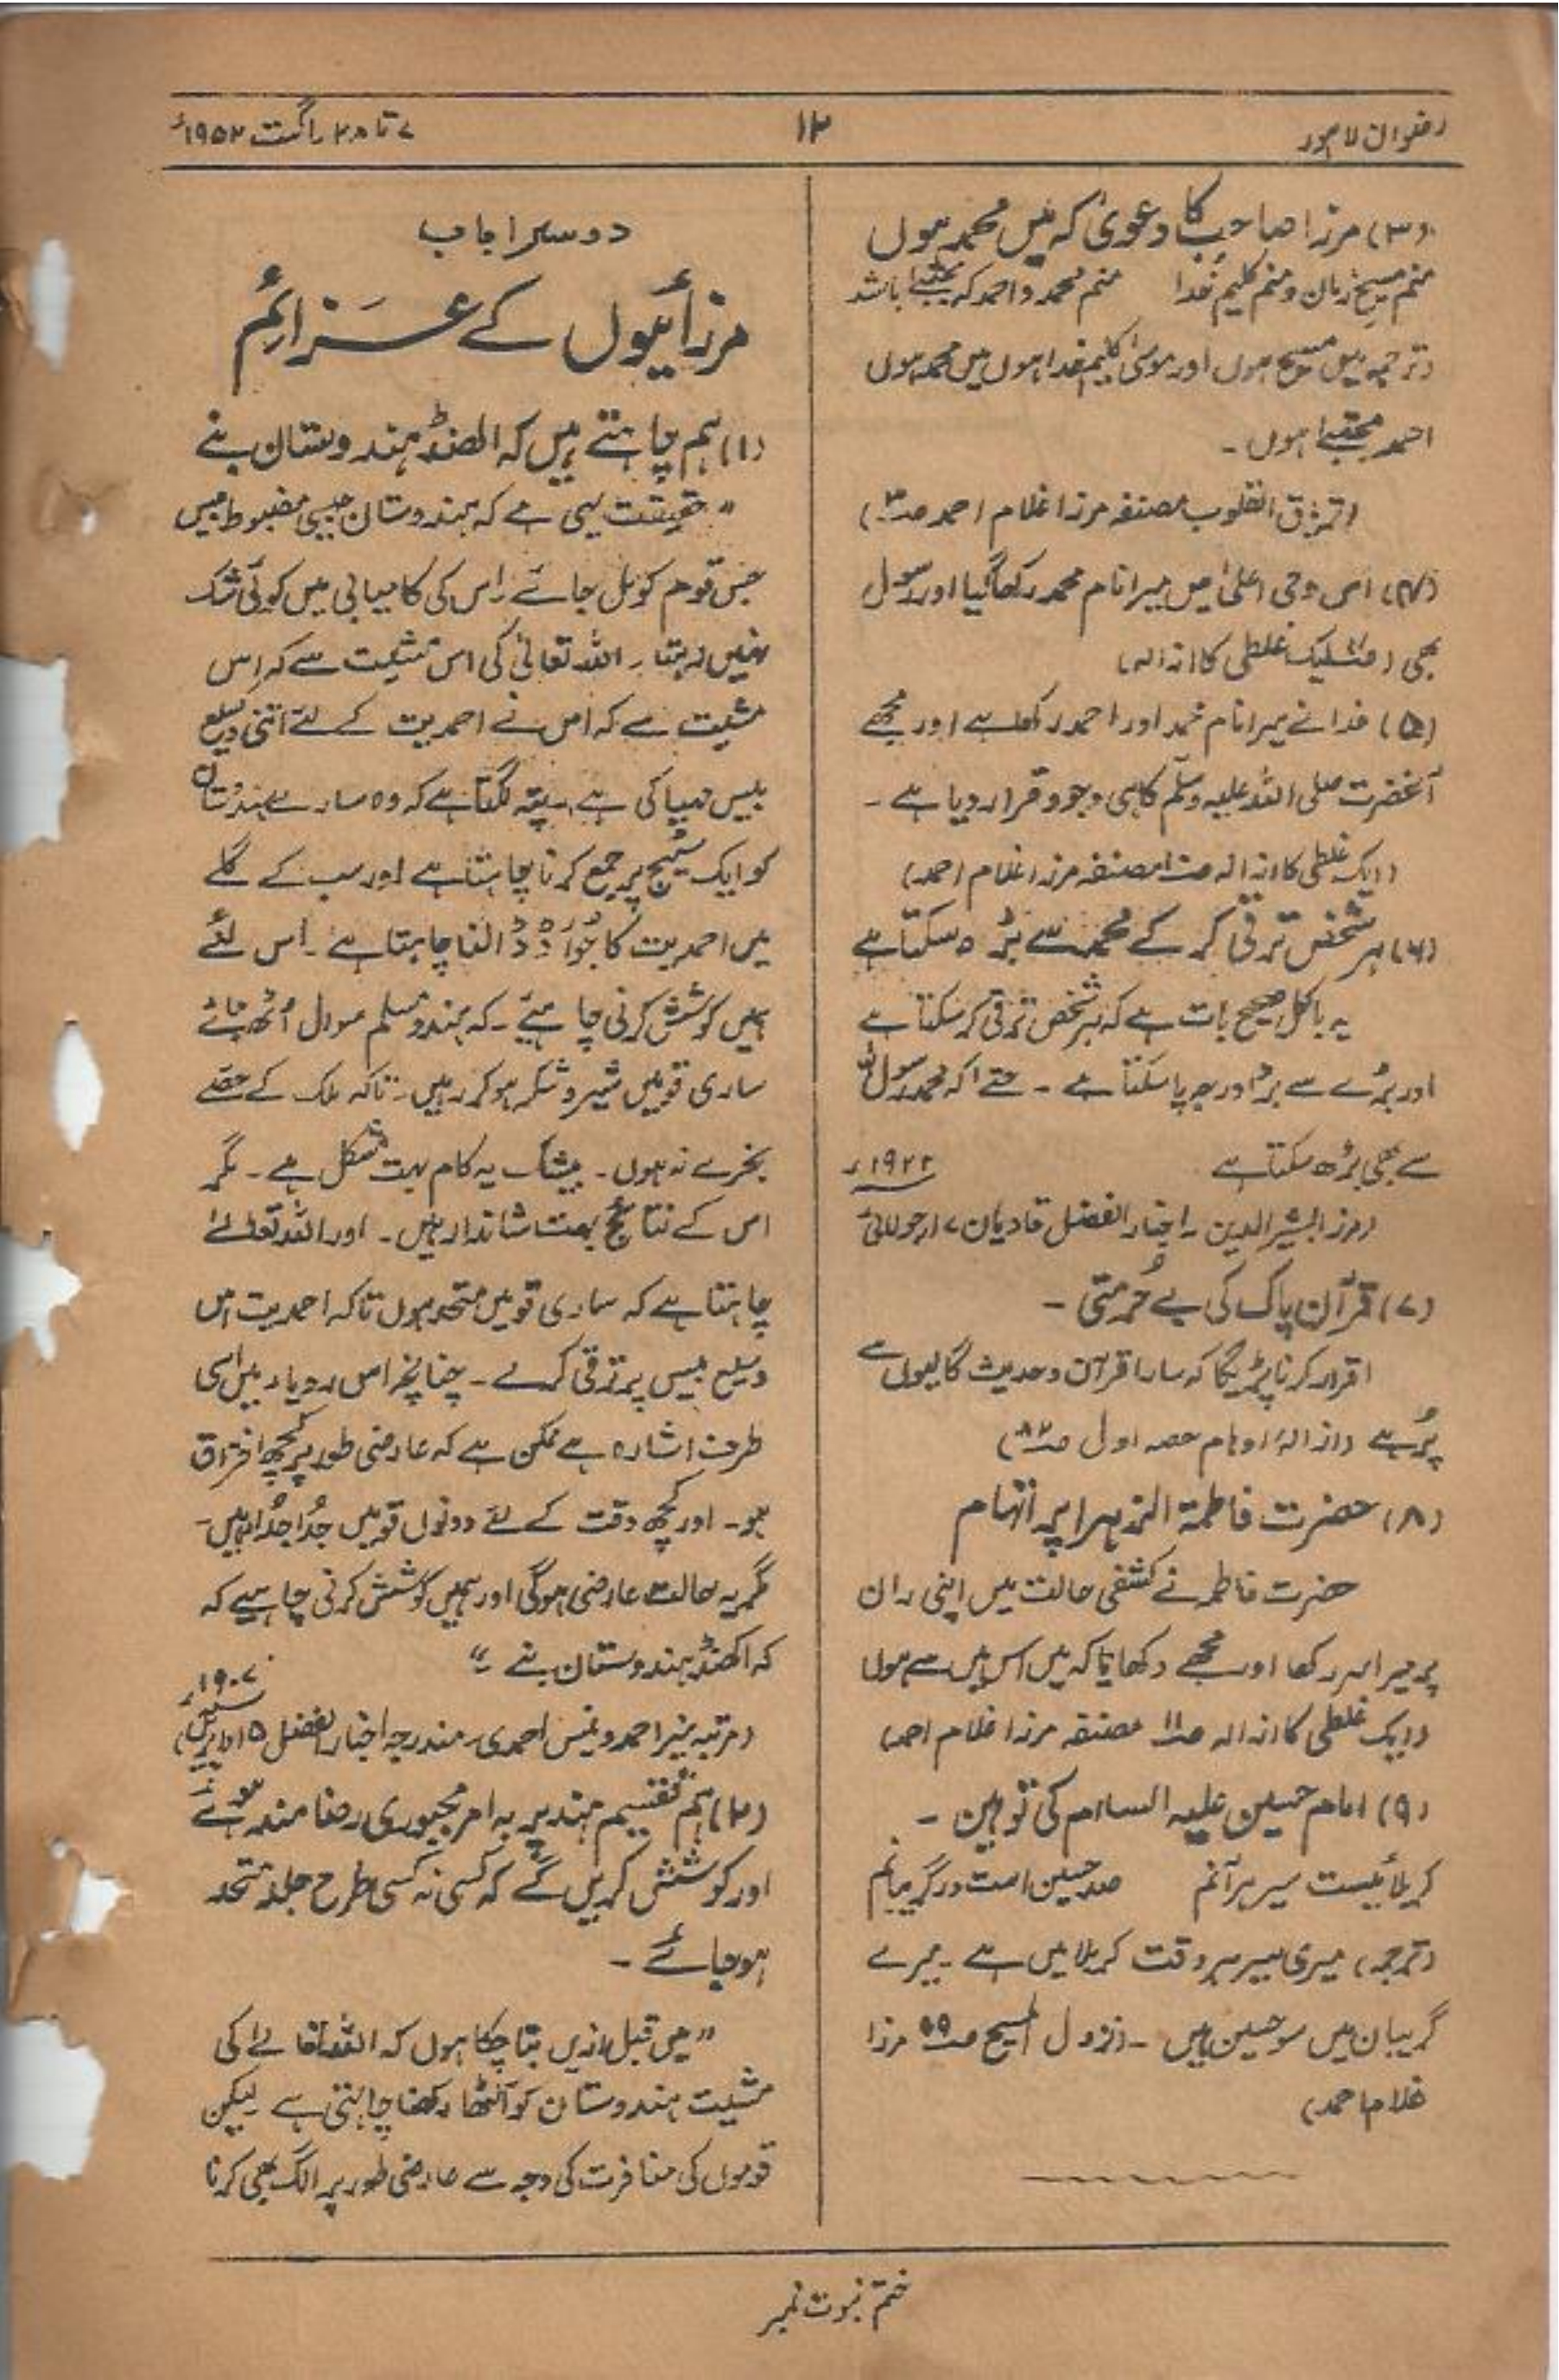 رضوان لاہور
۱۲
۷ تا ۲۸ راگست ۱۹۵۲ء
(۳) مرزا صاحب کا دعویٰ کہ میں محمد ہوں
منم مسیح زمان و منم کلیم خدا منم محمد و احمد کہ مجتبےٰ باشد
(ترجمہ) میں مسیح ہوں اور موسیٰ کلیم خدا ہوں میں محمد ہوں
احمد مجتبےٰ ہوں۔
(تریاق القلوب مصنفہ مرزا غلام احمد صہ۳)
(۴) اس وحی اعلیٰ میں میرا نام محمد رکھا گیا اور رسول
بھی ( ایک غلطی کا ازالہ)
(۵) خدا نے میرا نام محمد اور احمد رکھا ہے اور مجھے
آنحضرت صلی اللہ علیہ وسلم کا ہی وجود قرار دیا ہے ۔
(ایک غلطی کا ازالہ صہ۱۰ مصنفہ مرزا غلام احمد)
(۶) ہر شخص ترقی کر کے محمد سے بڑہ سکتا ہے
یہ بالکل صحیح بات ہے کہ ہر شخص ترقی کر سکتا ہے
اور بڑے سے بڑا درجہ پا سکتا ہے ۔ حتےٰ اکہ محمد رسول اللہ
سے بھی بڑھ سکتا ہے ۱۹۲۲ء
(مرزا بشیر الدین ۔ اخبار الفضل قادیان ۱۷ر جولائی
(۷) قرآن پاک کی بے حُرمتی ۔
اقرار کرنا پڑیگا کہ سارا قرآن و حدیث گالیوں سے
پُر ہے (ازالۂ اوہام حصہ اول صہ )
(۸) حضرت فاطمۃ الزہرا پر اتہام
حضرت فاطمہ نے کشفی حالت میں اپنی ران
پر میرا سر رکھا اور مجھے دکھایا کہ میں اس میں سے ہوں
(ایک غلطی کا ازالہ صہ۱۱ مصنفہ مرزا غلام احمد)
(۹) امام حسین علیہ السلام کی توہین ۔
کربلائیست سیر ہر آنم صد حسین است در گریبانم
(ترجمہ) میری سیر ہر وقت کربلا میں ہے ۔ میرے
گریبان میں سو حسین ہیں ۔ (نزول المسیح صہ۹۹ مرزا
غلام احمد)
دوسرا باب
مرزائیوں کے عزائم
(۱) ہم چاہتے ہیں کہ اکھنڈ ہندوستان بنے
"حقیقت یہی ہے کہ ہندوستان جیسی مضبوط بیس
جس قوم کو مل جائے اس کی کامیابی میں کوئی شک
نہیں رہتا۔ اللہ تعالیٰ کی اس مشیت سے کہ اس
مشیت ہے کہ اس نے احمدیت کے لئے اتنی وسیع
بیس مہیا کی ہے۔ پتہ لگتا ہے کہ وہ سارے ہندوستان
کو ایک سٹیج پر جمع کرنا چاہتا ہے اور سب کے گلے
میں احمدیت کا جُوا ڈالنا چاہتا ہے ۔ اس لئے
ہمیں کوشش کرنی چاہیئے ۔ کہ ہندو مسلم سوال اُٹھ جائے
ساری قومیں شیر و شکر ہو کر رہیں۔ تاکہ ملک کے حصے
بخرے نہ ہوں۔ بیشک یہ کام بہت مشکل ہے۔ مگر
اس کے نتائج بہت شاندار ہیں۔ اور اللہ تعالےٰ
چاہتا ہے کہ ساری قومیں متحد ہوں تاکہ احمدیت اس
وسیع بیس پر ترقی کرے ۔ چنانچہ اس رویا میں اسی
طرف اشارہ ہے ممکن ہے کہ عارضی طور پر کچھ افتراق
ہو۔ اور کچھ وقت کے لئے دونوں قومیں جُدا جُدا رہیں۔
مگر یہ حالت عارضی ہوگی اور ہمیں کوشش کرنی چاہیے کہ
کہ اکھنڈ ہندوستان بنے ۔"
(مرتبہ منیر احمد وینس احمدی۔ مندرجہ اخبار الفضل ۵ اپریل
(۲) ہم تقسیم ہند پر بہ امر مجبوری رضا مند ہوئے
اور کوشش کریں گے کہ کسی نہ کسی طرح جلد متحد
ہوجائے ۔
"میں قبل ازیں بتا چکا ہوں کہ اللہ تعالےٰ کی
مشیت ہندوستان کو اکٹھا رکھنا چاہتی ہے لیکن
قوموں کی منافرت کی وجہ سے عارضی طور پر الگ بھی کرنا
ختم نبوت نمبر